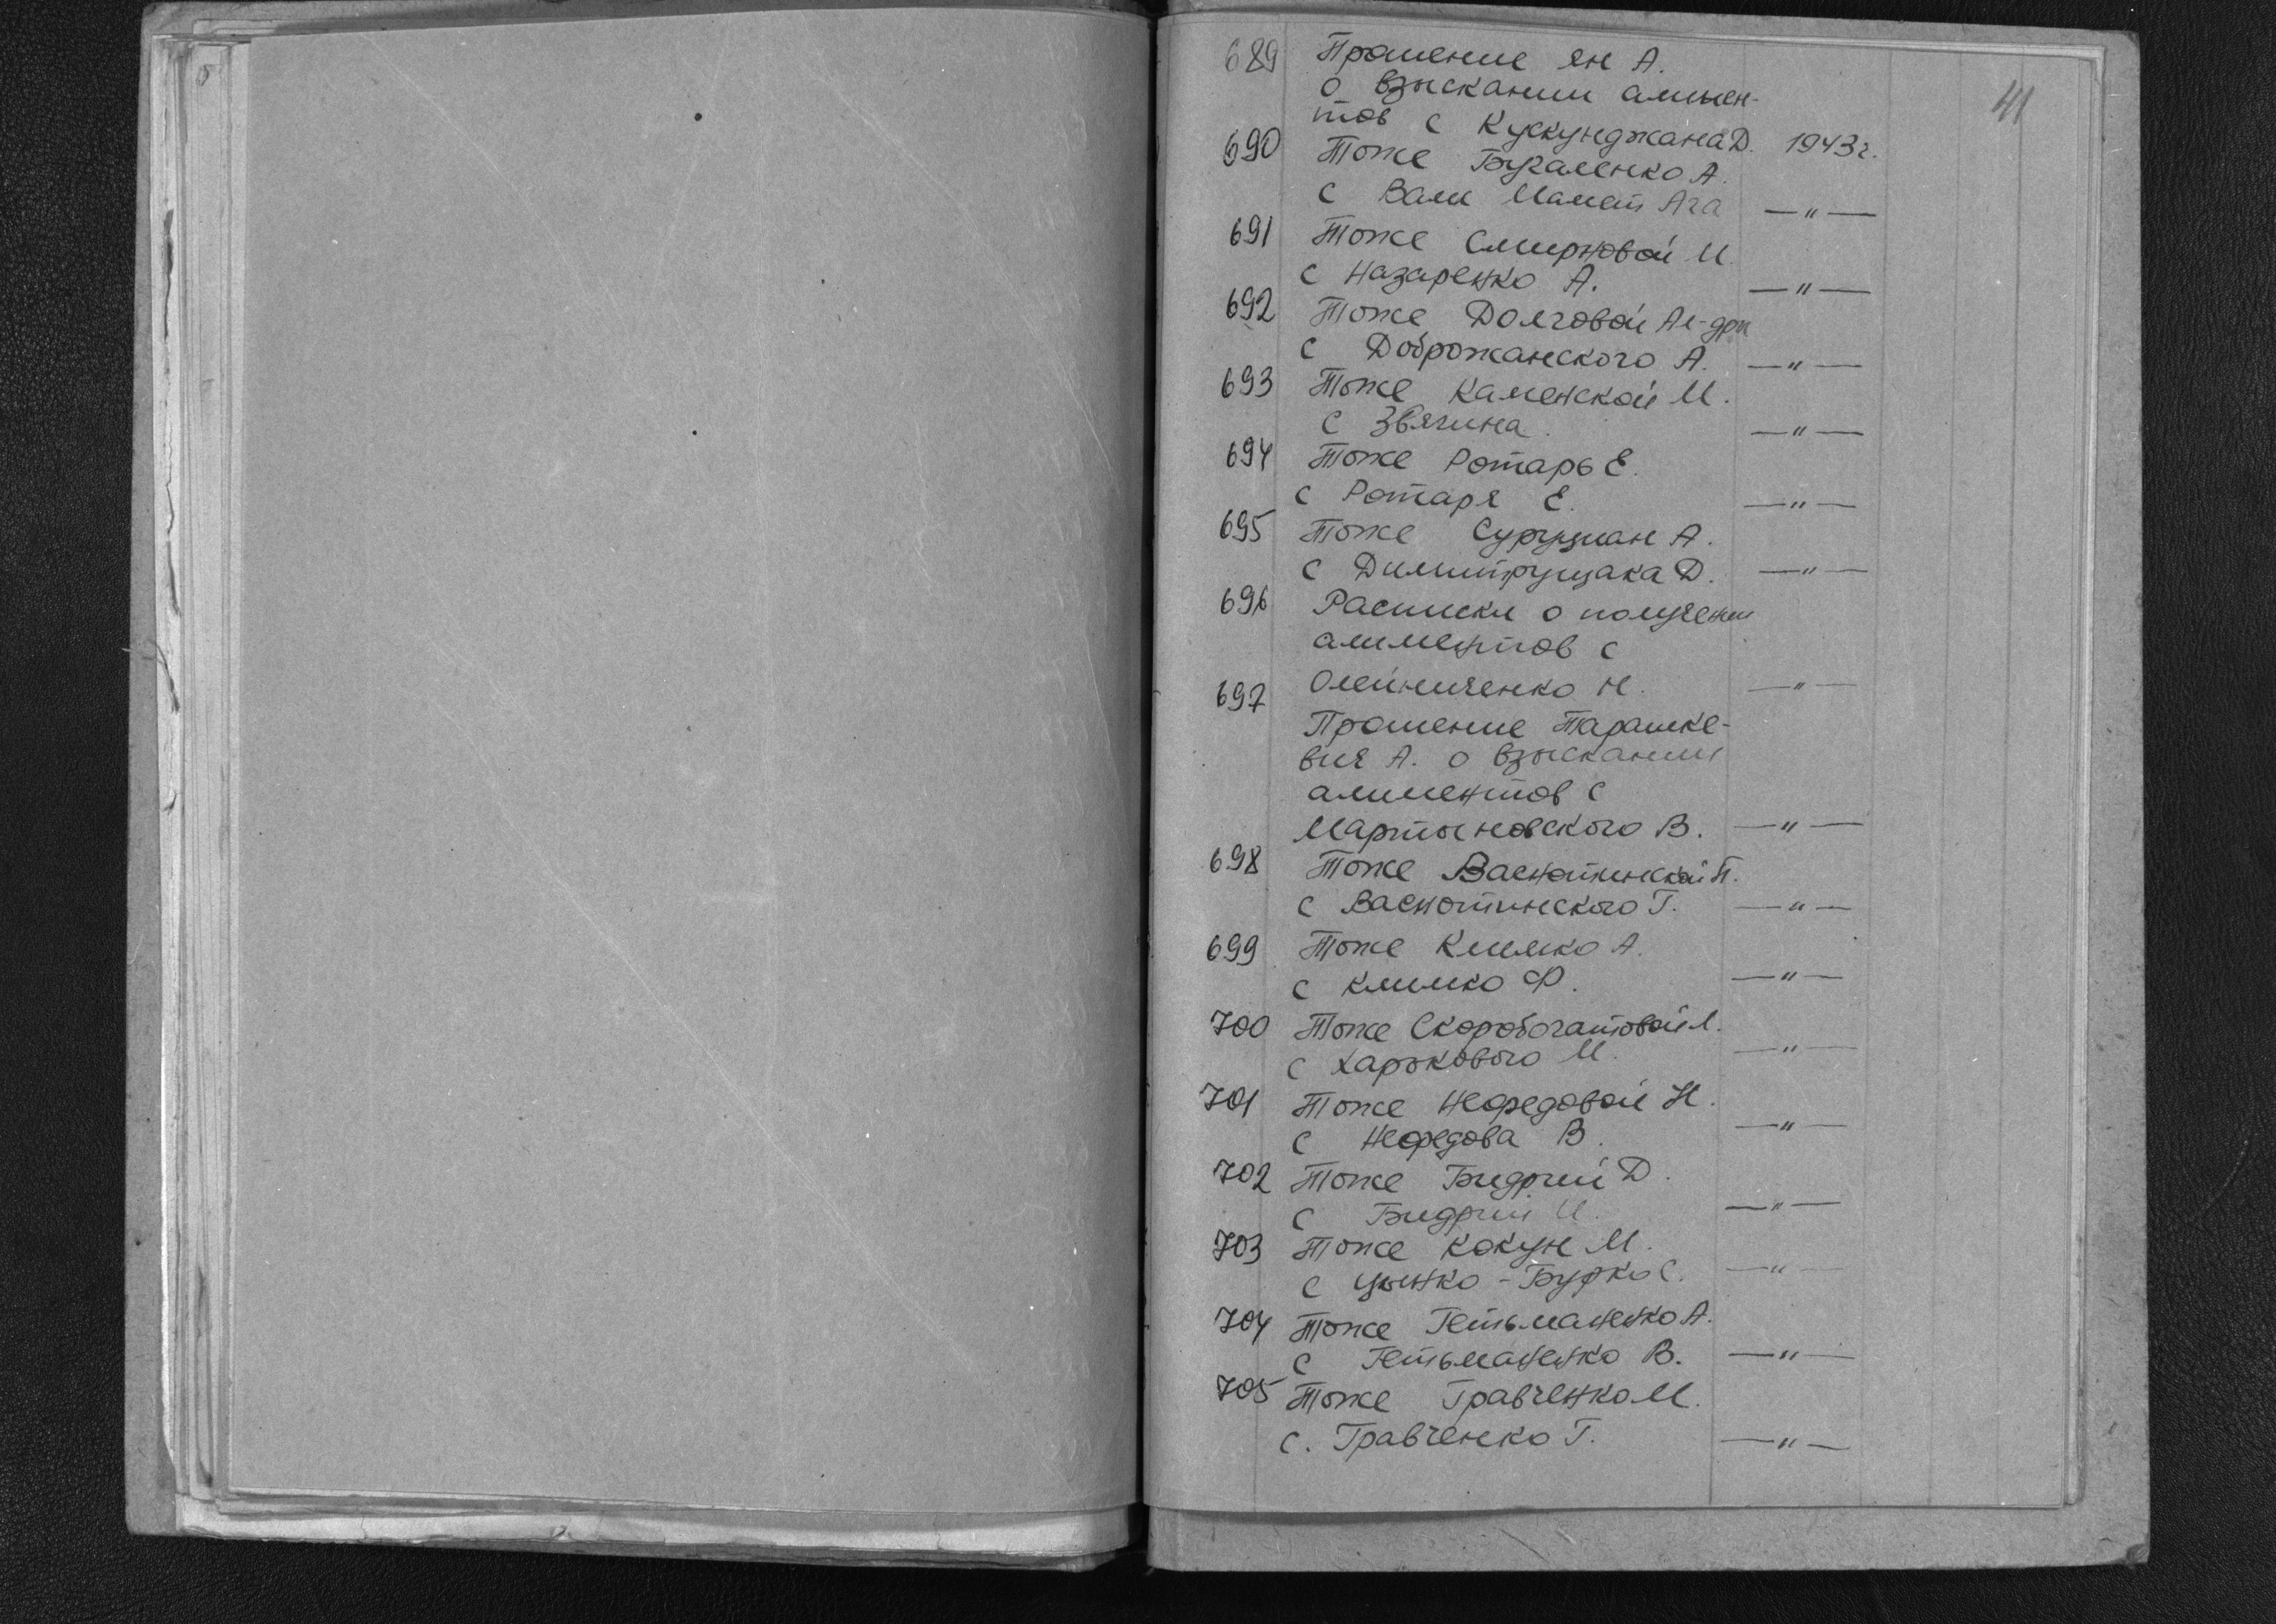 41
689 Прошение Ян А.
о взыскании алимен-
тов с Кускунджана Д. 1943г.
690 Тоже Бугаленко А.
с Вали Мамет Ага —"—
691 Тоже Смирновой М.
с Назаренко А. —"—
692 Тоже Долговой Ал-дры
с Доброжанского А. —"—
693 Тоже Каменской М.
с Звягина. —"—
694 Тоже Ротарь Е.
с Ротаря Е. —"—
695 Тоже Суруциан А.
с Димитрущака Д. —"—
696 Расписки о получении
алиментов с
Олейниченко Н. —"—
697 Прошение Тарашке-
вич А. о взыскании
алиментов с
Мартыновского В. —"—
698 Тоже Васнотинской П.
с Васнотинского Г. —"—
699 Тоже Климко А.
с Климко Ф. —"—
700 Тоже Скоробогатовой Л.
с Харькового М. —"—
701 Тоже Нефедовой Н.
с Нефедова В. —"—
702 Тоже Бидрий Д.
с Бидрий И. —"—
703 Тоже Кокун М.
с Цынко-Бурко С. —"—
704 Тоже Гетьманенко А.
с Гетьманенко В. —"—
705 Тоже Гравченко М.
с. Гравченко Г. —"—